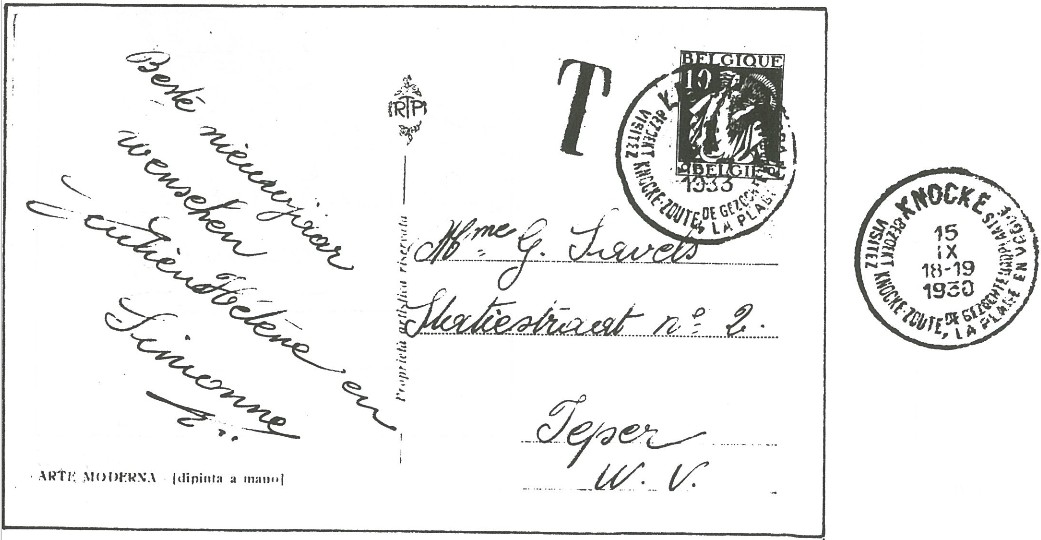 Beste
nieuwjaar
wenschen
Julien Hélène en
Simonne
RTP
T
BELGIQUE
10
BELGIË
1933
BEZOEKT KNOCKE-ZOUTE, DE GEZOCHTE
VISITEZ LA PLAGE
Mme G. Lavels
Statiestraat no 2.
Ieper
W. V.
Proprietà artistica riservata
ARTE MODERNA - [dipinta a mano]
KNOCKE
15
IX
18-19
1930
BEZOEKT KNOCKE-ZOUTE, DE GEZOCHTE BADPLAATS
VISITEZ LA PLAGE EN VOGUE